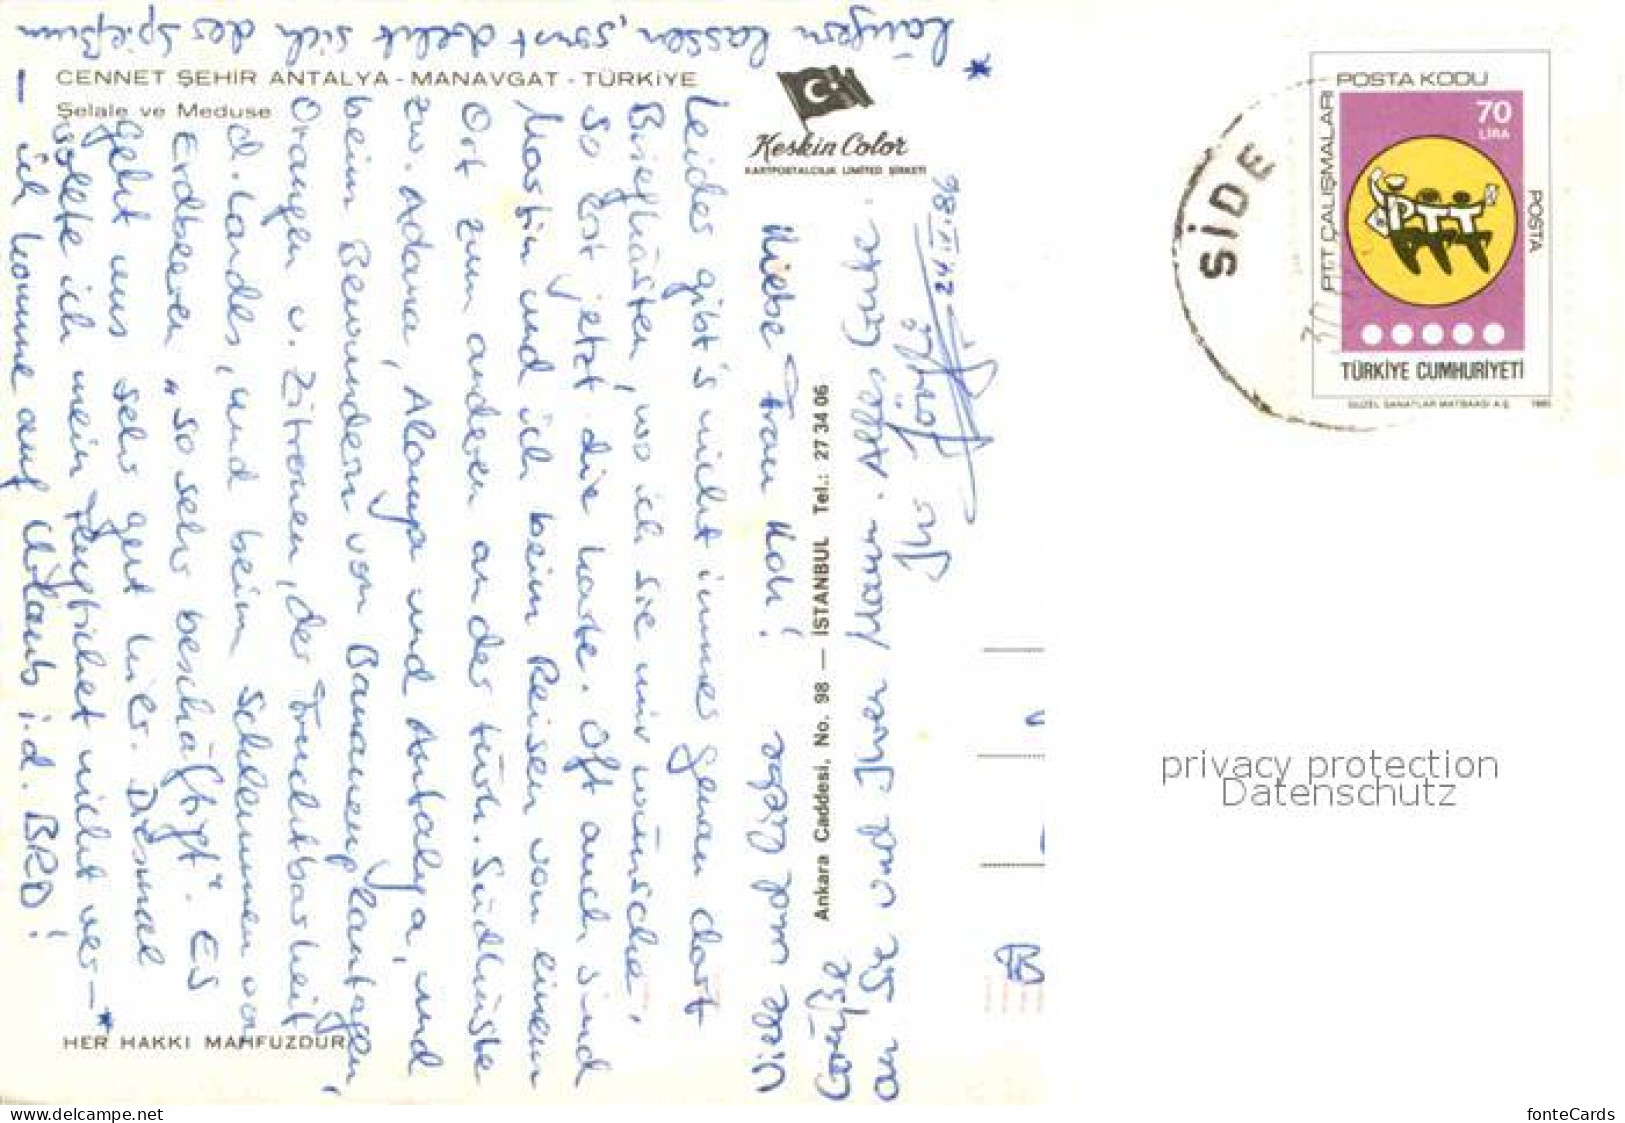 Längern lassen, sonst dreht sich der Spieß um
*
CENNET ŞEHİR ANTALYA - MANAVGAT - TÜRKİYE
Şelale ve Meduse
Keskin Color
KARTPOSTALCILIK LIMITED ŞİRKETİ
Ankara Caddesi, No. 98 — İSTANBUL Tel.: 27 34 06
HER HAKKI MAHFUZDUR
24.VI.86
Liebe Frau Koh!
Leider gibt's nicht immer genau dort
Briefkästen, wo ich sie mir wünsche,
so erst jetzt die Karte. Oft auch sind
Martin und ich beim Reisen von einem
Ort zum anderen an der türk. Südküste
zw. Adana, Alanya und Antalya, und
beim Bewundern von Bananenplantagen,
Orangen u. Zitronen, der Fruchtbarkeit
d. Landes, und beim Schlemmen von
Erdbeeren „so sehr beschäftigt“. Es
geht uns sehr gut hier. Diesmal
wollte ich mein nicht ver-*
— ich komme auf Urlaub i.d. BRD!
Viele und liebe
Grüße
an Sie und Ihren Mann. Alles Gute.
Ihr
SİDE
POSTA KODU
PTT ÇALIŞMALARI
70
LİRA
PTT
POSTA
TÜRKİYE CUMHURİYETİ
GÜZEL SANATLAR MATBAASI A.Ş. 1985
privacy protection
Datenschutz
www.delcampe.net
fonteCards